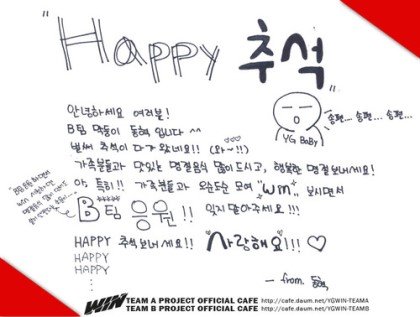 "Happy 추석"
안녕하세요 여러분!
B팀 명동이 동혁 입니다 ^^
벌써 추석이 다가왔네요!! (와~!!)
송편... 송편... 송편...
YG BaBy
가족분들과 맛있는 명절음식 많이드시고, 행복한 명절보내세요!
아 특히!! 가족분들과 오순도순 모여 "WIN" 보시면서
B팀 응원!! 잊지 말아주세요!!!
HAPPY 추석보내세요!! 사랑해요!!! ♡
HAPPY
HAPPY
⋮
— from. 동혁
WIN
TEAM A PROJECT OFFICIAL CAFE http://cafe.daum.net/YGWIN-TEAMA
TEAM B PROJECT OFFICIAL CAFE http://cafe.daum.net/YGWIN-TEAMB